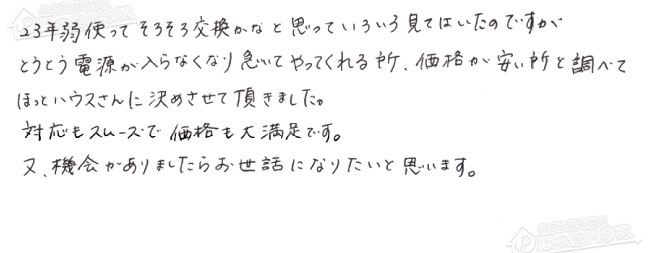 23年弱使ってそろそろ交換かなと思っていろいろ見てはいたのですが
とうとう電源が入らなくなり急いでやってくれる所、価格が安い所と調べて
ほっとハウスさんに決めさせて頂きました。
対応もスムーズで価格も大満足です。
又、機会がありましたらお世話になりたいと思います。